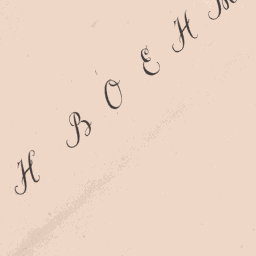 H B O E H M